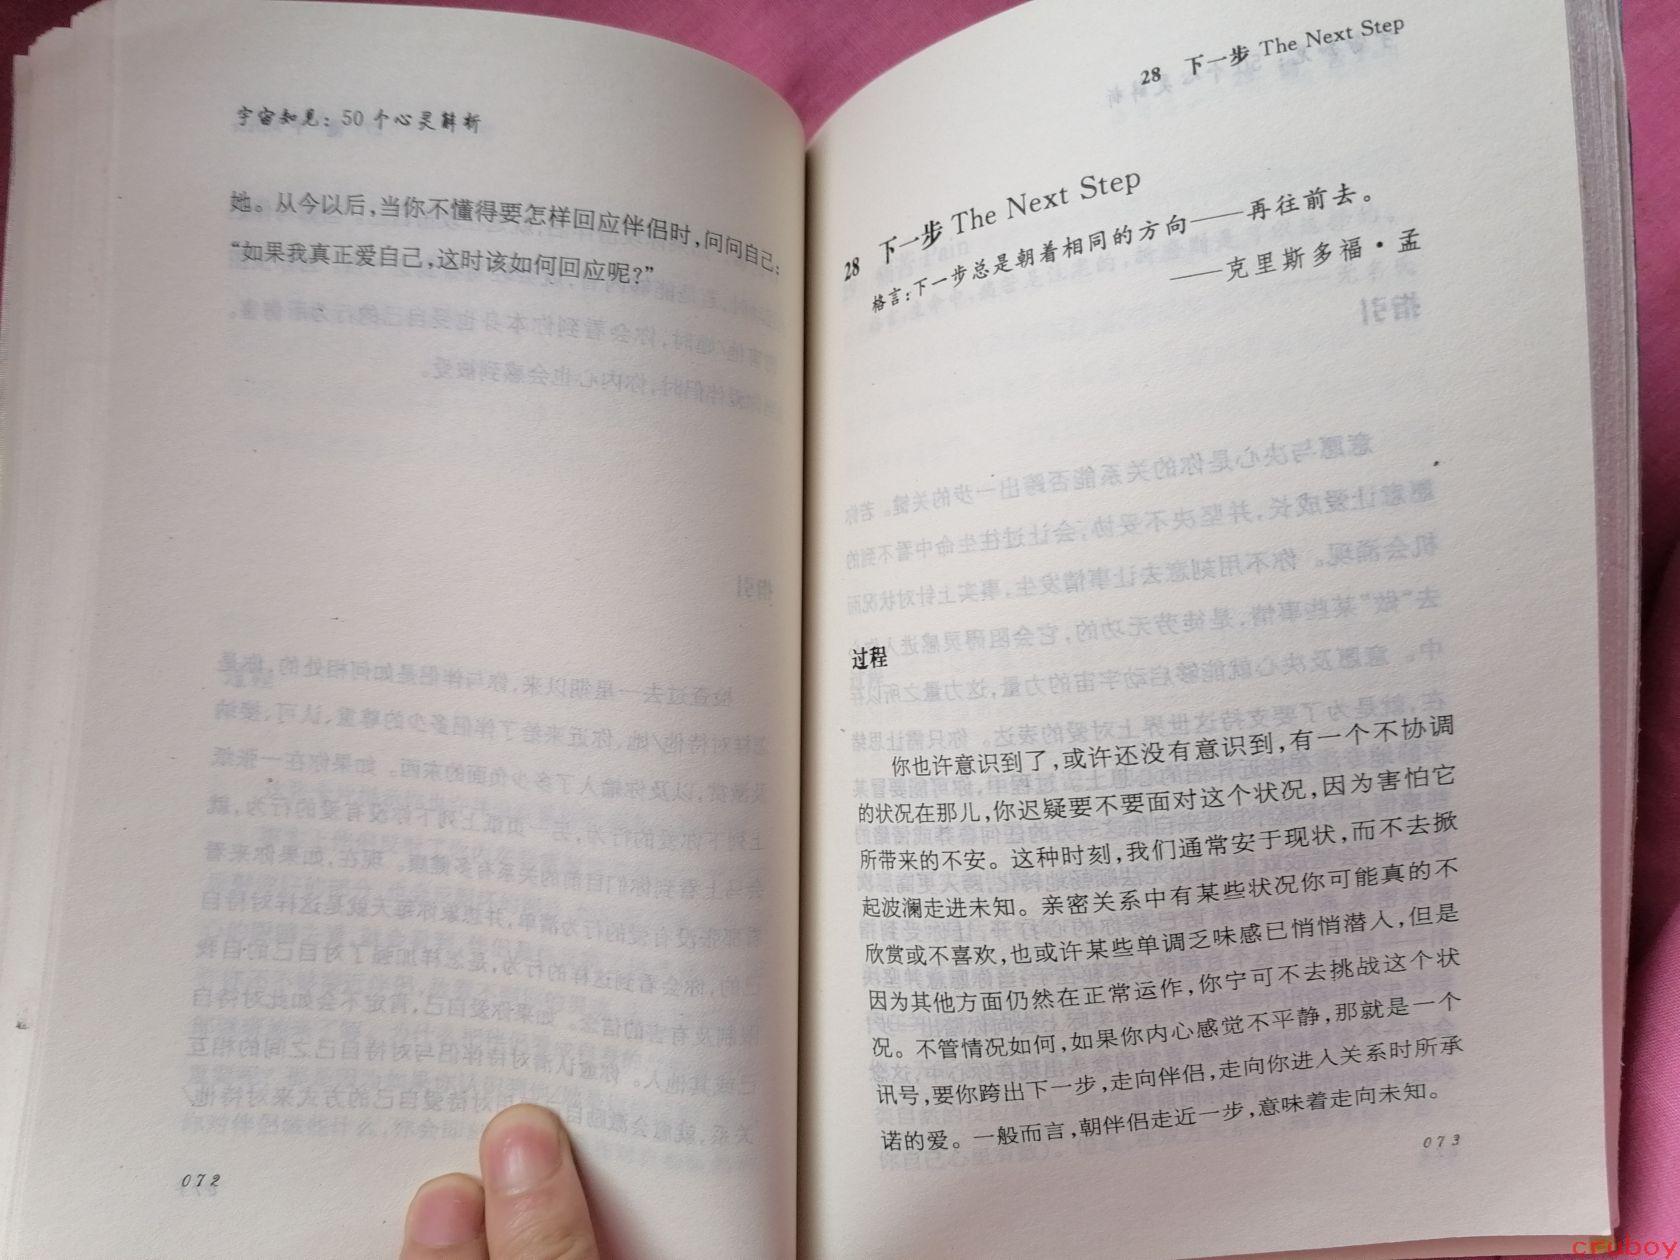 宇宙知见：50个心灵解析
她。从今以后，当你不懂得要怎样回应伴侣时，问问自己：
“如果我真正爱自己，这时该如何回应呢？”
072
28 下一步 The Next Step
28 下一步 The Next Step
格言：下一步总是朝着相同的方向——再往前去。
——克里斯多福·孟
过程
你也许意识到了，或许还没有意识到，有一个不协调
的状况在那儿，你迟疑要不要面对这个状况，因为害怕它
所带来的不安。这种时刻，我们通常安于现状，而不去掀
起波澜走进未知。亲密关系中有某些状况你可能真的不
欣赏或不喜欢，也或许某些单调乏味感已悄悄潜入，但是
因为其他方面仍然在正常运作，你宁可不去挑战这个状
况。不管情况如何，如果你内心感觉不平静，那就是一个
讯号，要你跨出下一步，走向伴侣，走向你进入关系时所承
诺的爱。一般而言，朝伴侣走近一步，意味着走向未知。
073
cruboy